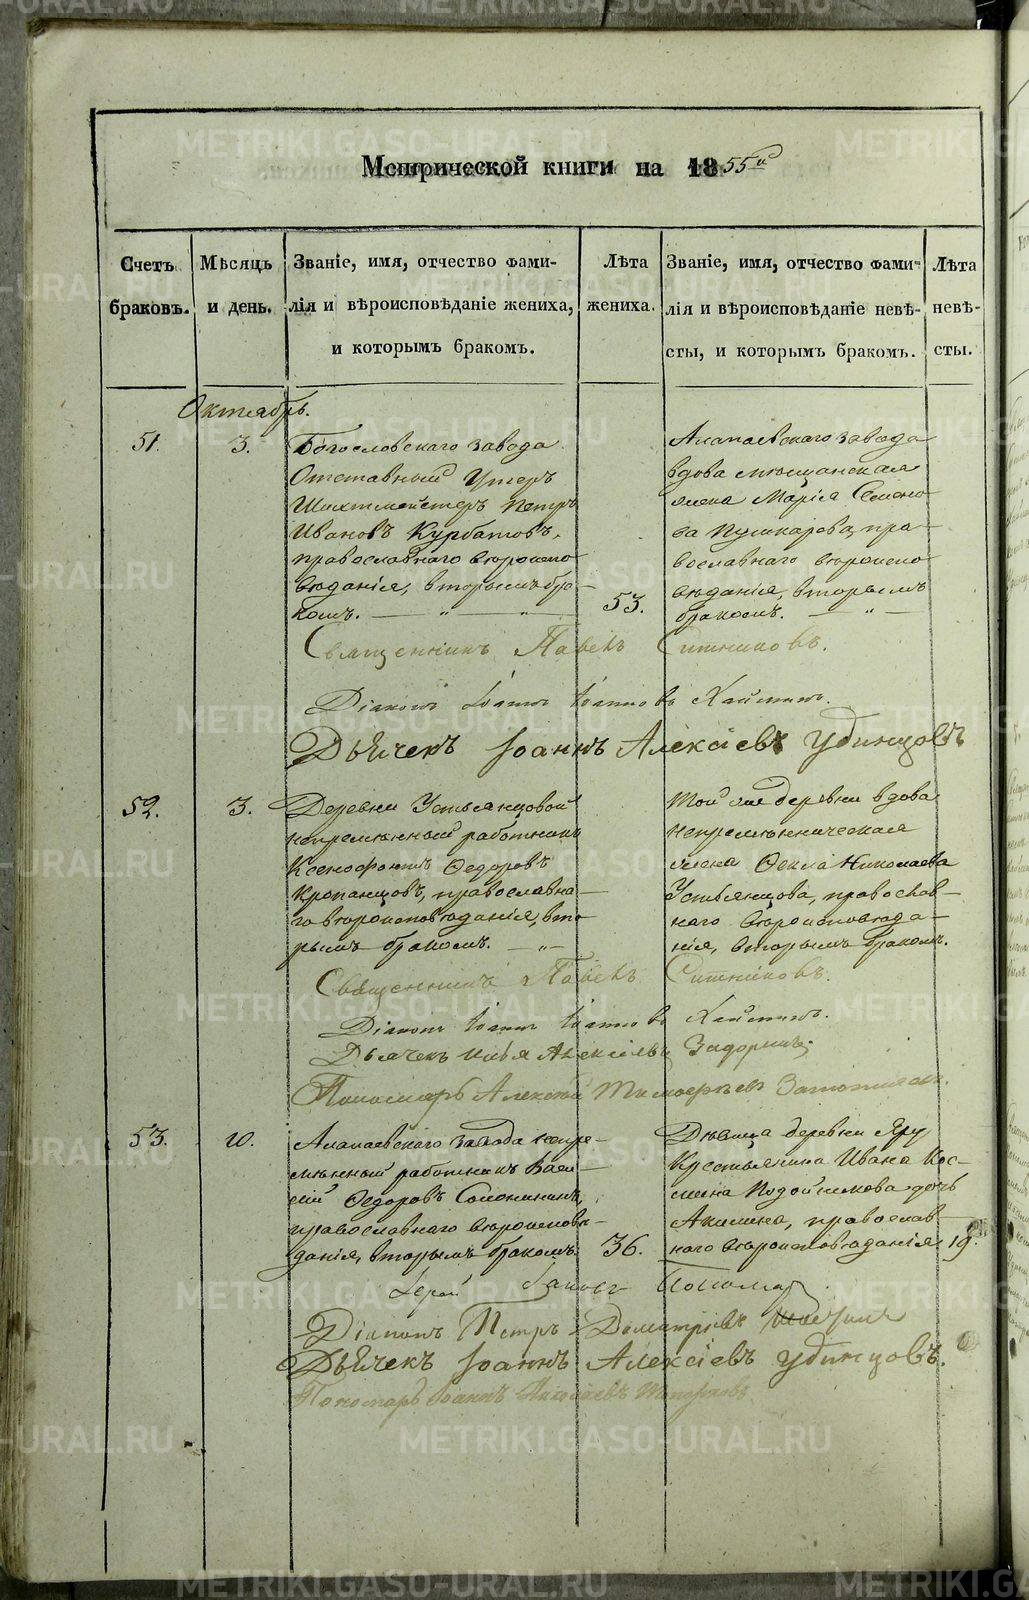 METRIKI.GASO-URAL.RU
Метрической книги на 1855й
Счетъ браковъ.
Мѣсяцъ и день.
Званіе, имя, отчество фами-
лія и вѣроисповѣданіе жениха,
и которымъ бракомъ.
Лѣта жениха.
Званіе, имя, отчество фами-
лія и вѣроисповѣданіе невѣ-
сты, и которымъ бракомъ.
Лѣта невѣ-
сты.
Октябрь.
51. 3.
Богословскаго завода
Отставный Унтеръ
Шихтмейстеръ Петръ
Ивановъ Курбатовъ,
православнаго вѣроиспо
вѣданія, вторымъ бра-
комъ.
53.
Алапаевскаго завода
вдова мѣщанская
жена Марія Семено-
ва Пушкарева, пра-
вославнаго вѣроиспо
вѣданія, вторымъ
бракомъ.
Священникъ Павелъ Ситниковъ.
Діаконъ Іоаннъ Іоанновъ
Дьячекъ Іоаннъ Алексіевъ Удинцовъ
52. 3.
Деревни Устьянцовой
непремѣнный работникъ
Ксенофонтъ Ѳедоровъ
православна-
го вѣроисповѣданія, вто-
рымъ бракомъ.
Той же деревни вдова
непремѣнническая
жена Ѳекла Николаева
Устьянцова, православ-
наго вѣроисповѣда-
нія, вторымъ бракомъ.
Священникъ Павелъ Ситниковъ.
Діаконъ Іоаннъ Іоанновъ
Дьячекъ Илья Алексіевъ Задоринъ.
Пономарь Алексій
53. 10.
Алапаевскаго завода непре-
мѣнный работникъ Васи-
лій Ѳедоровъ Солонининъ,
православнаго вѣроисповѣ-
данія, вторымъ бракомъ.
36.
Дѣвица деревни Яру
Крестьянина Ивана Кос-
мина Подойникова дочь
Акилина, православ-
наго вѣроисповѣданія
19.
Іерей Іаковъ
Діаконъ Петръ Димитріевъ
Дьячекъ Іоаннъ Алексіевъ Удинцовъ.
Пономарь Іоаннъ